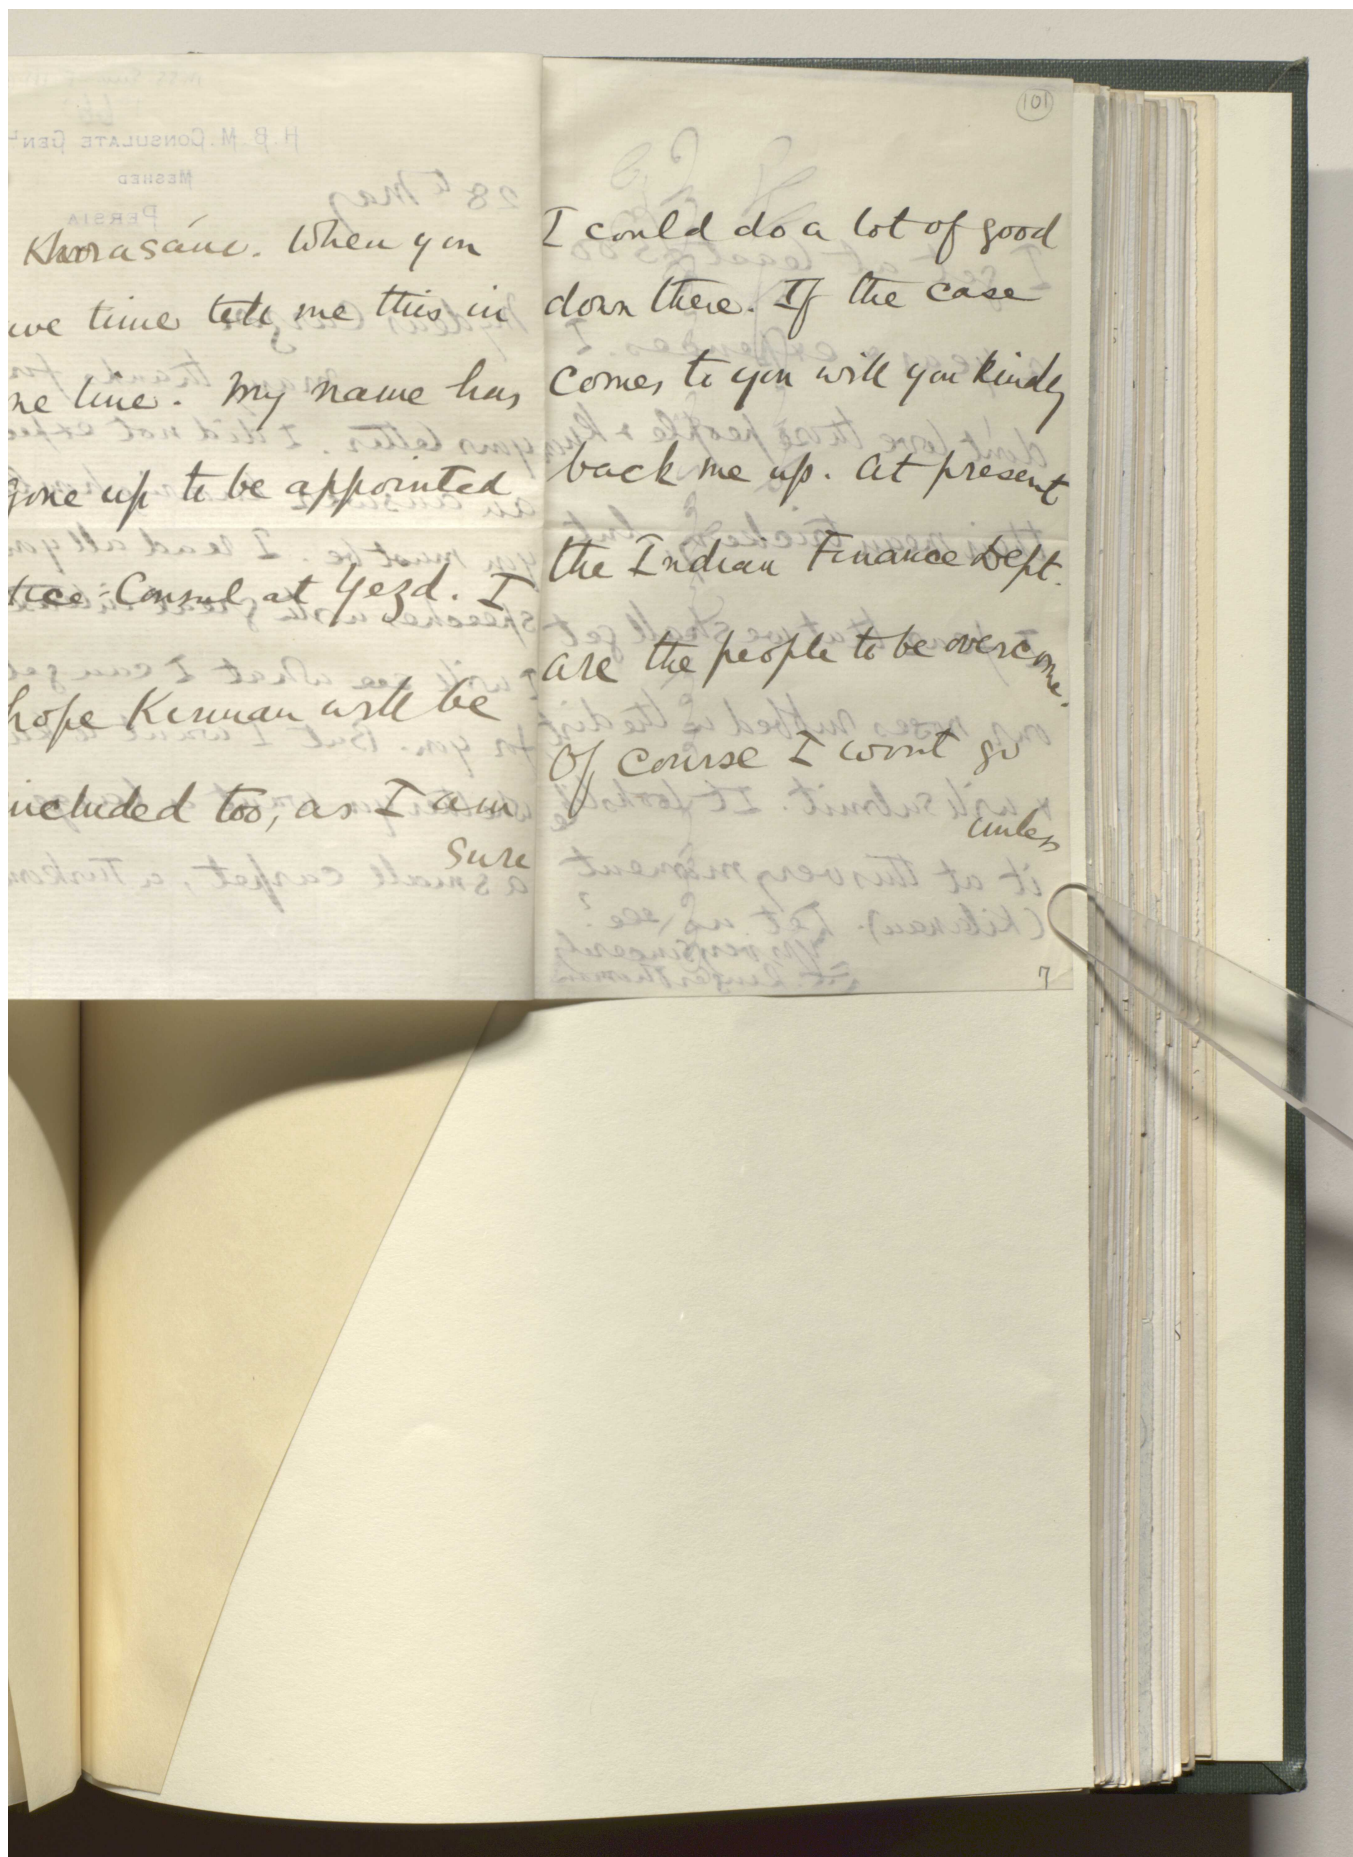 Khorasán. When you
time tell me this in
line. My name has
gone up to be appointed
Vice-Consul at Yezd. I
hope Kerman will be
included too, as I am
sure
101
I could do a lot of good
down there. If the case
comes to you will you kindly
back me up. At present
the Indian Finance Dept.
are the people to be overcome.
Of course I wont go
unless
7